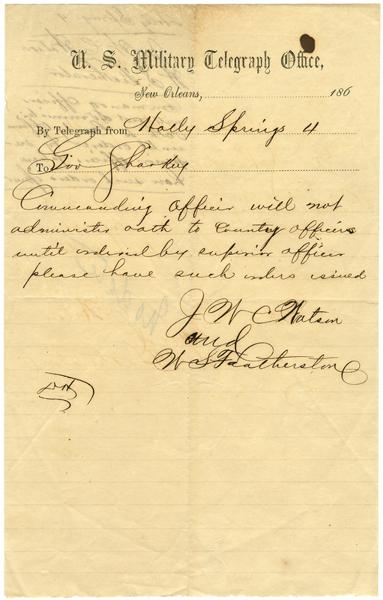 U. S. Military Telegraph Office,
New Orleans, 186
By Telegraph from Holly Springs 4
To Gov Sharkey
Commanding Officer will not
administer oath to County officers
until ordered by superior officer
please have such orders issued
J W C Watson
and
W S Featherston